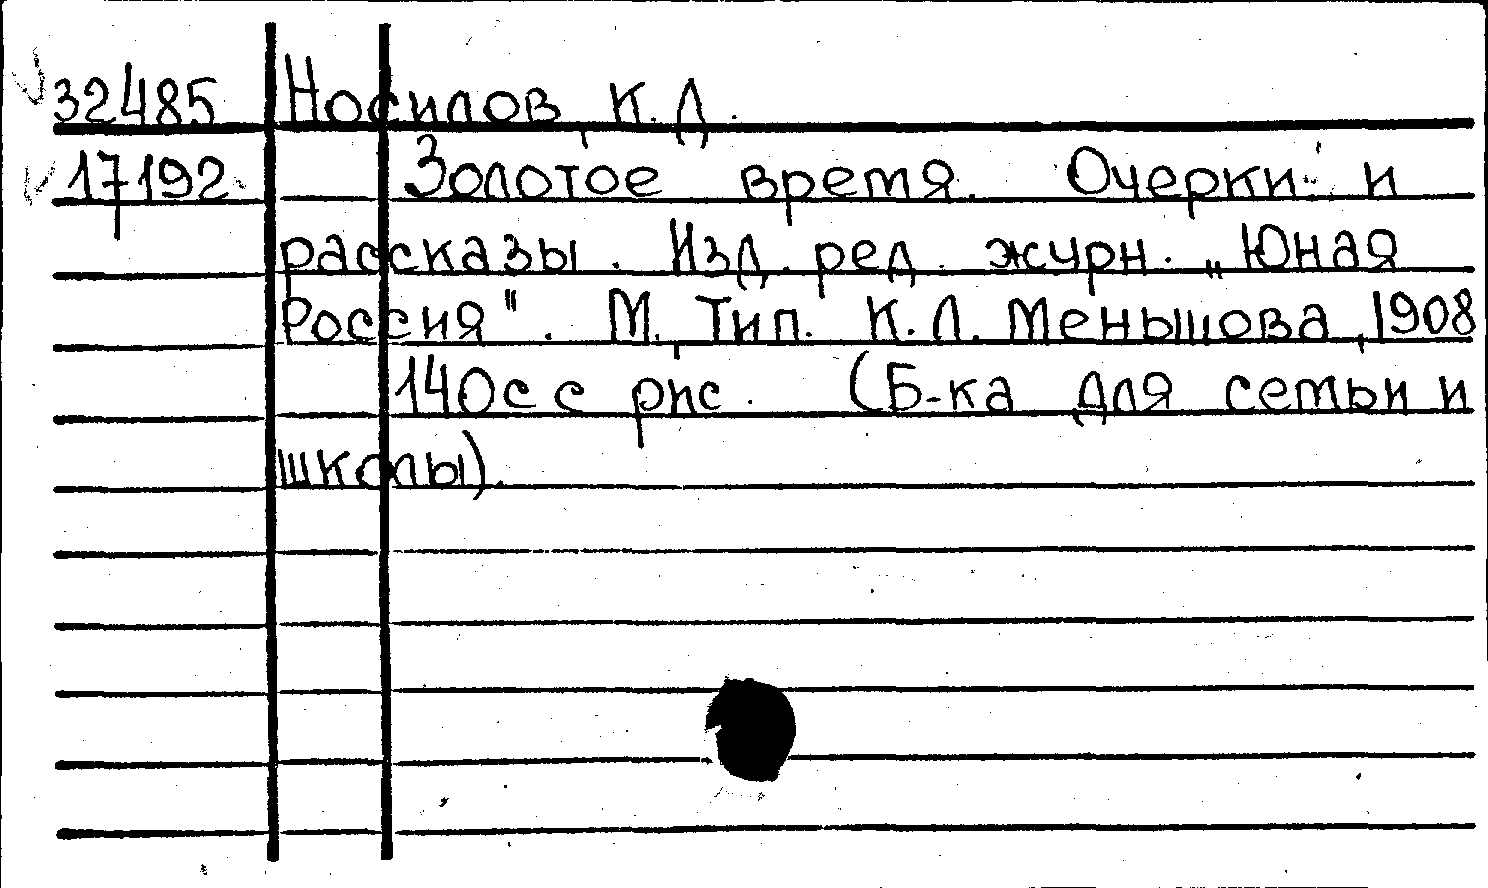 32485 Носилов, К.Д.
17192 Золотое время. Очерки и
рассказы. Изд. ред. журн. „Юная
Россия". М., Тип. К.Л. Меньшова, 1908
140с с рис. (Б-ка для семьи и
школы).